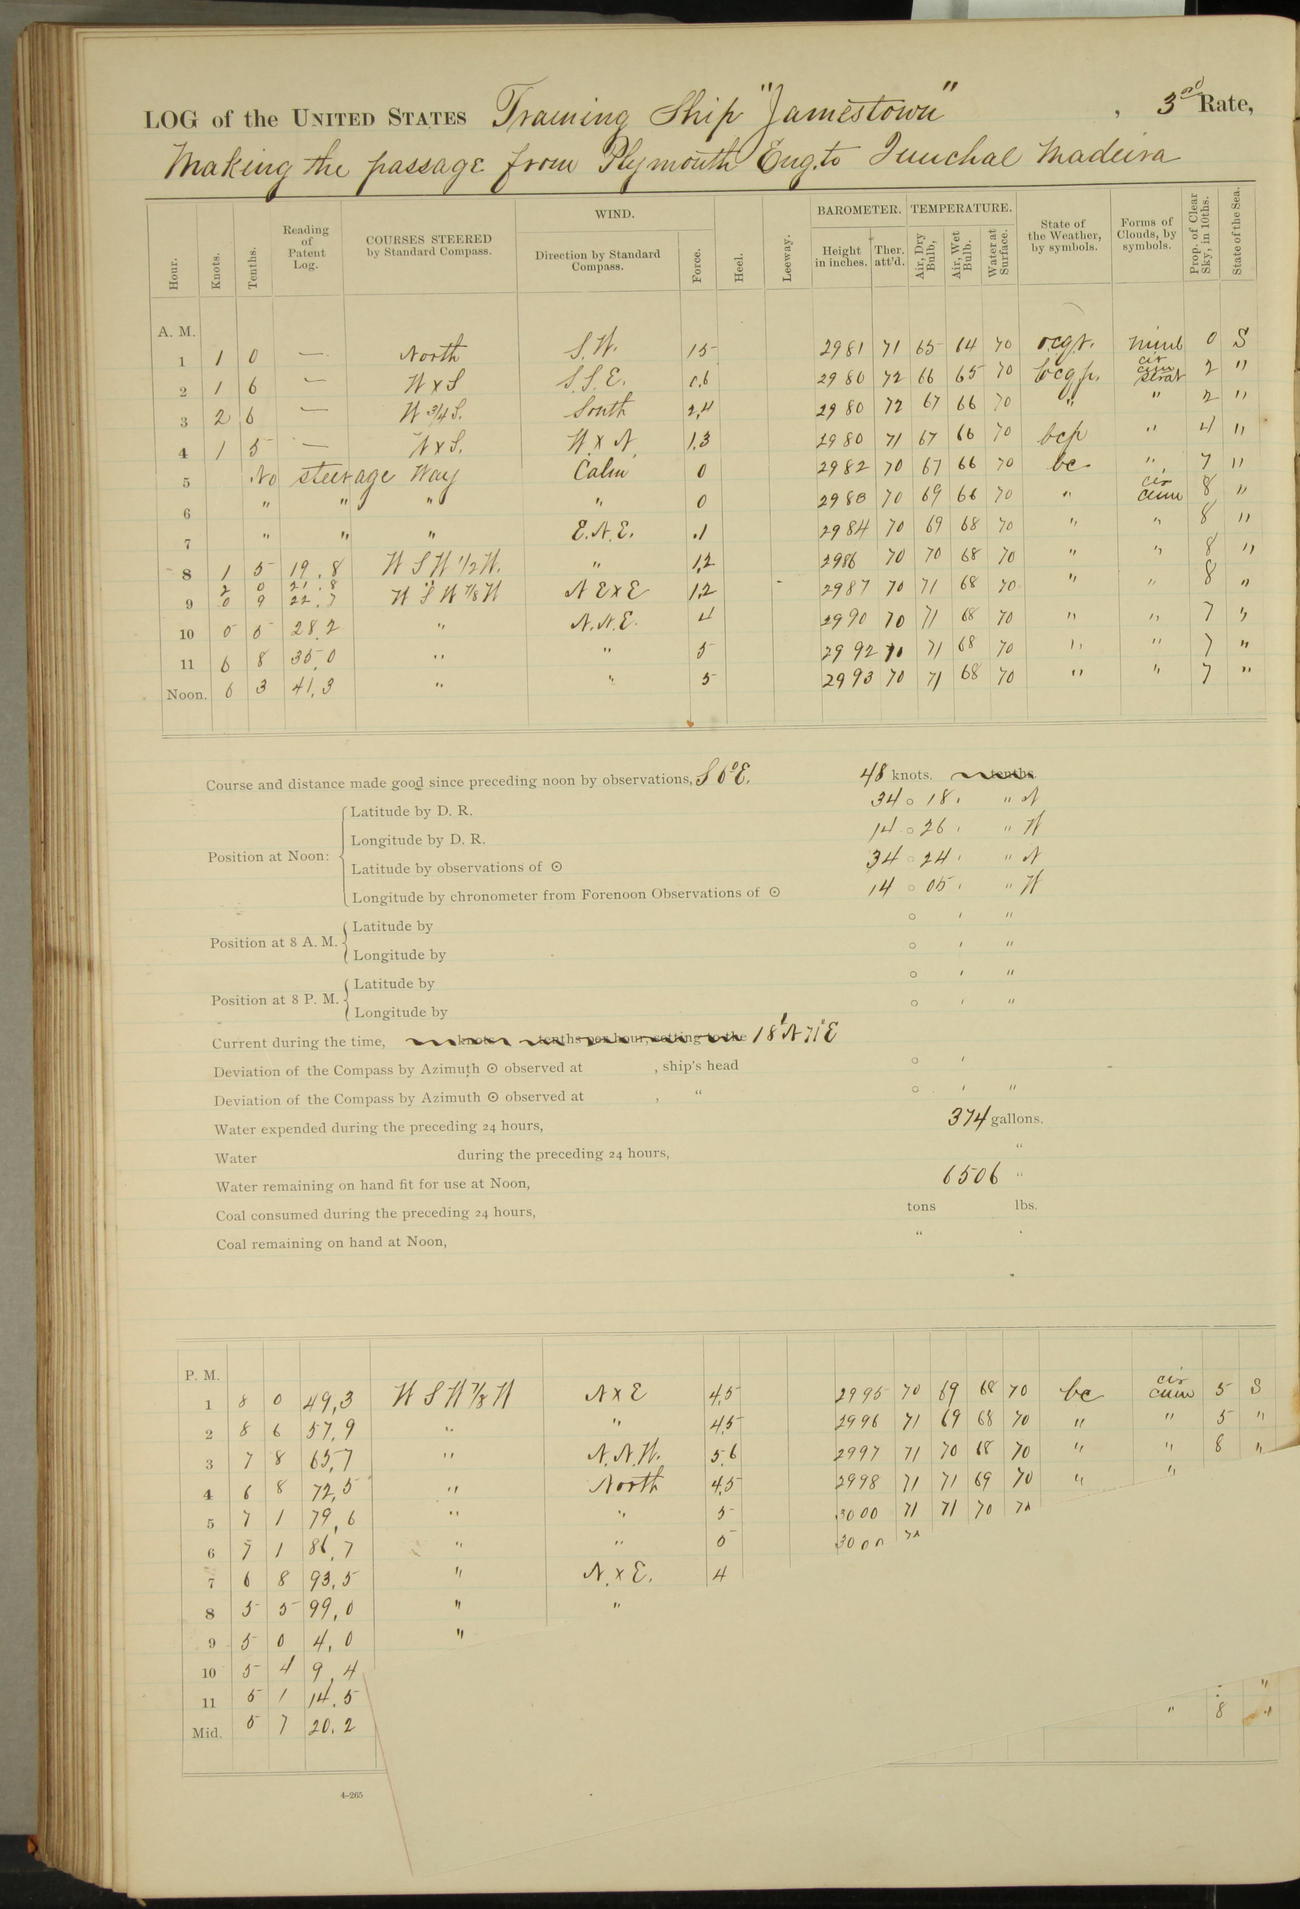 LOG of the UNITED STATES Training Ship "Jamestown", 3rd Rate,
Making the passage from Plymouth Eng. to Funchal Madeira
Hour. Knots. Tenths. Reading of Patent Log. COURSES STEERED by Standard Compass. WIND. Direction by Standard Compass. Force. Heel. Leeway. BAROMETER. Height in inches. Ther. att'd. TEMPERATURE. Air, Dry Bulb, Air, Wet Bulb. Water at Surface. State of the Weather, by symbols. Forms of Clouds, by symbols. Prop. of Clear Sky, in 10ths. State of the Sea.
A. M.
1 1 0 — North S.W. 1.5 29 81 71 65 64 70 ocqr. nimb 0 S
2 1 6 — W x S S.S.E. 0.6 29 80 72 66 65 70 bcqp. cir cum strat 2 "
3 2 6 — W 3/4 S. South 2,4 29 80 72 67 66 70 " " 2 "
4 1 5 — W x S. W. x N. 1.3 29 80 71 67 66 70 bcp " 4 "
5 No steerage Way Calm 0 29 82 70 67 66 70 bc " 7 "
6 " " " " 0 29 83 70 69 66 70 " cir cum 8 "
7 " " " E.N.E. .1 29 84 70 69 68 70 " " 8 "
8 1 5 19.8 W S W 1/2 W. " 1,2 29 86 70 70 68 70 " " 8 "
2 0 21.8 "
9 0 9 22.7 W S W 7/8 W N E x E 1,2 29 87 70 71 68 70 " " 8 "
10 5 5 28.2 " N.N.E. 4 29 90 70 71 68 70 " " 7 "
11 6 8 35.0 " " 5 29 92 70 71 68 70 " " 7 "
Noon. 6 3 41.3 " " 5 29 93 70 71 68 70 " " 7 "
Course and distance made good since preceding noon by observations, S 6° E. 48 knots. tenths.
Position at Noon:
Latitude by D. R. 34 ° 18 ' " N
Longitude by D. R. 14 ° 26 ' " W
Latitude by observations of ☉ 34 ° 24 ' " N
Longitude by chronometer from Forenoon Observations of ☉ 14 ° 05 ' " W
Position at 8 A. M.
Latitude by ° ' "
Longitude by ° ' "
Position at 8 P. M.
Latitude by ° ' "
Longitude by ° ' "
Current during the time, knots tenths per hour, setting to the 18' N 71° E
Deviation of the Compass by Azimuth ☉ observed at , ship's head ° '
Deviation of the Compass by Azimuth ☉ observed at , " ° ' "
Water expended during the preceding 24 hours, 374 gallons.
Water during the preceding 24 hours, "
Water remaining on hand fit for use at Noon, 6506 "
Coal consumed during the preceding 24 hours, tons lbs.
Coal remaining on hand at Noon, "
P. M.
1 8 0 49,3 W S W 7/8 W N x E 4.5 29 95 70 69 68 70 bc cir cum 5 S
2 8 6 57.9 " " 4.5 29 96 71 69 68 70 " " 5 "
3 7 8 65,7 " N.N.W. 5.6 29 97 71 70 68 70 " " 8 "
4 6 8 72,5 " North 4.5 29 98 71 71 69 70 " "
5 7 1 79,6 " " 5 30 00 71 71 70
6 7 1 86,7 " " 5 30 00
7 6 8 93,5 " N. x E. 4
8 5 5 99,0 " "
9 5 0 4,0 "
10 5 4 9,4
11 5 1 14.5 "
Mid. 5 7 20.2 " 8 "
4–265